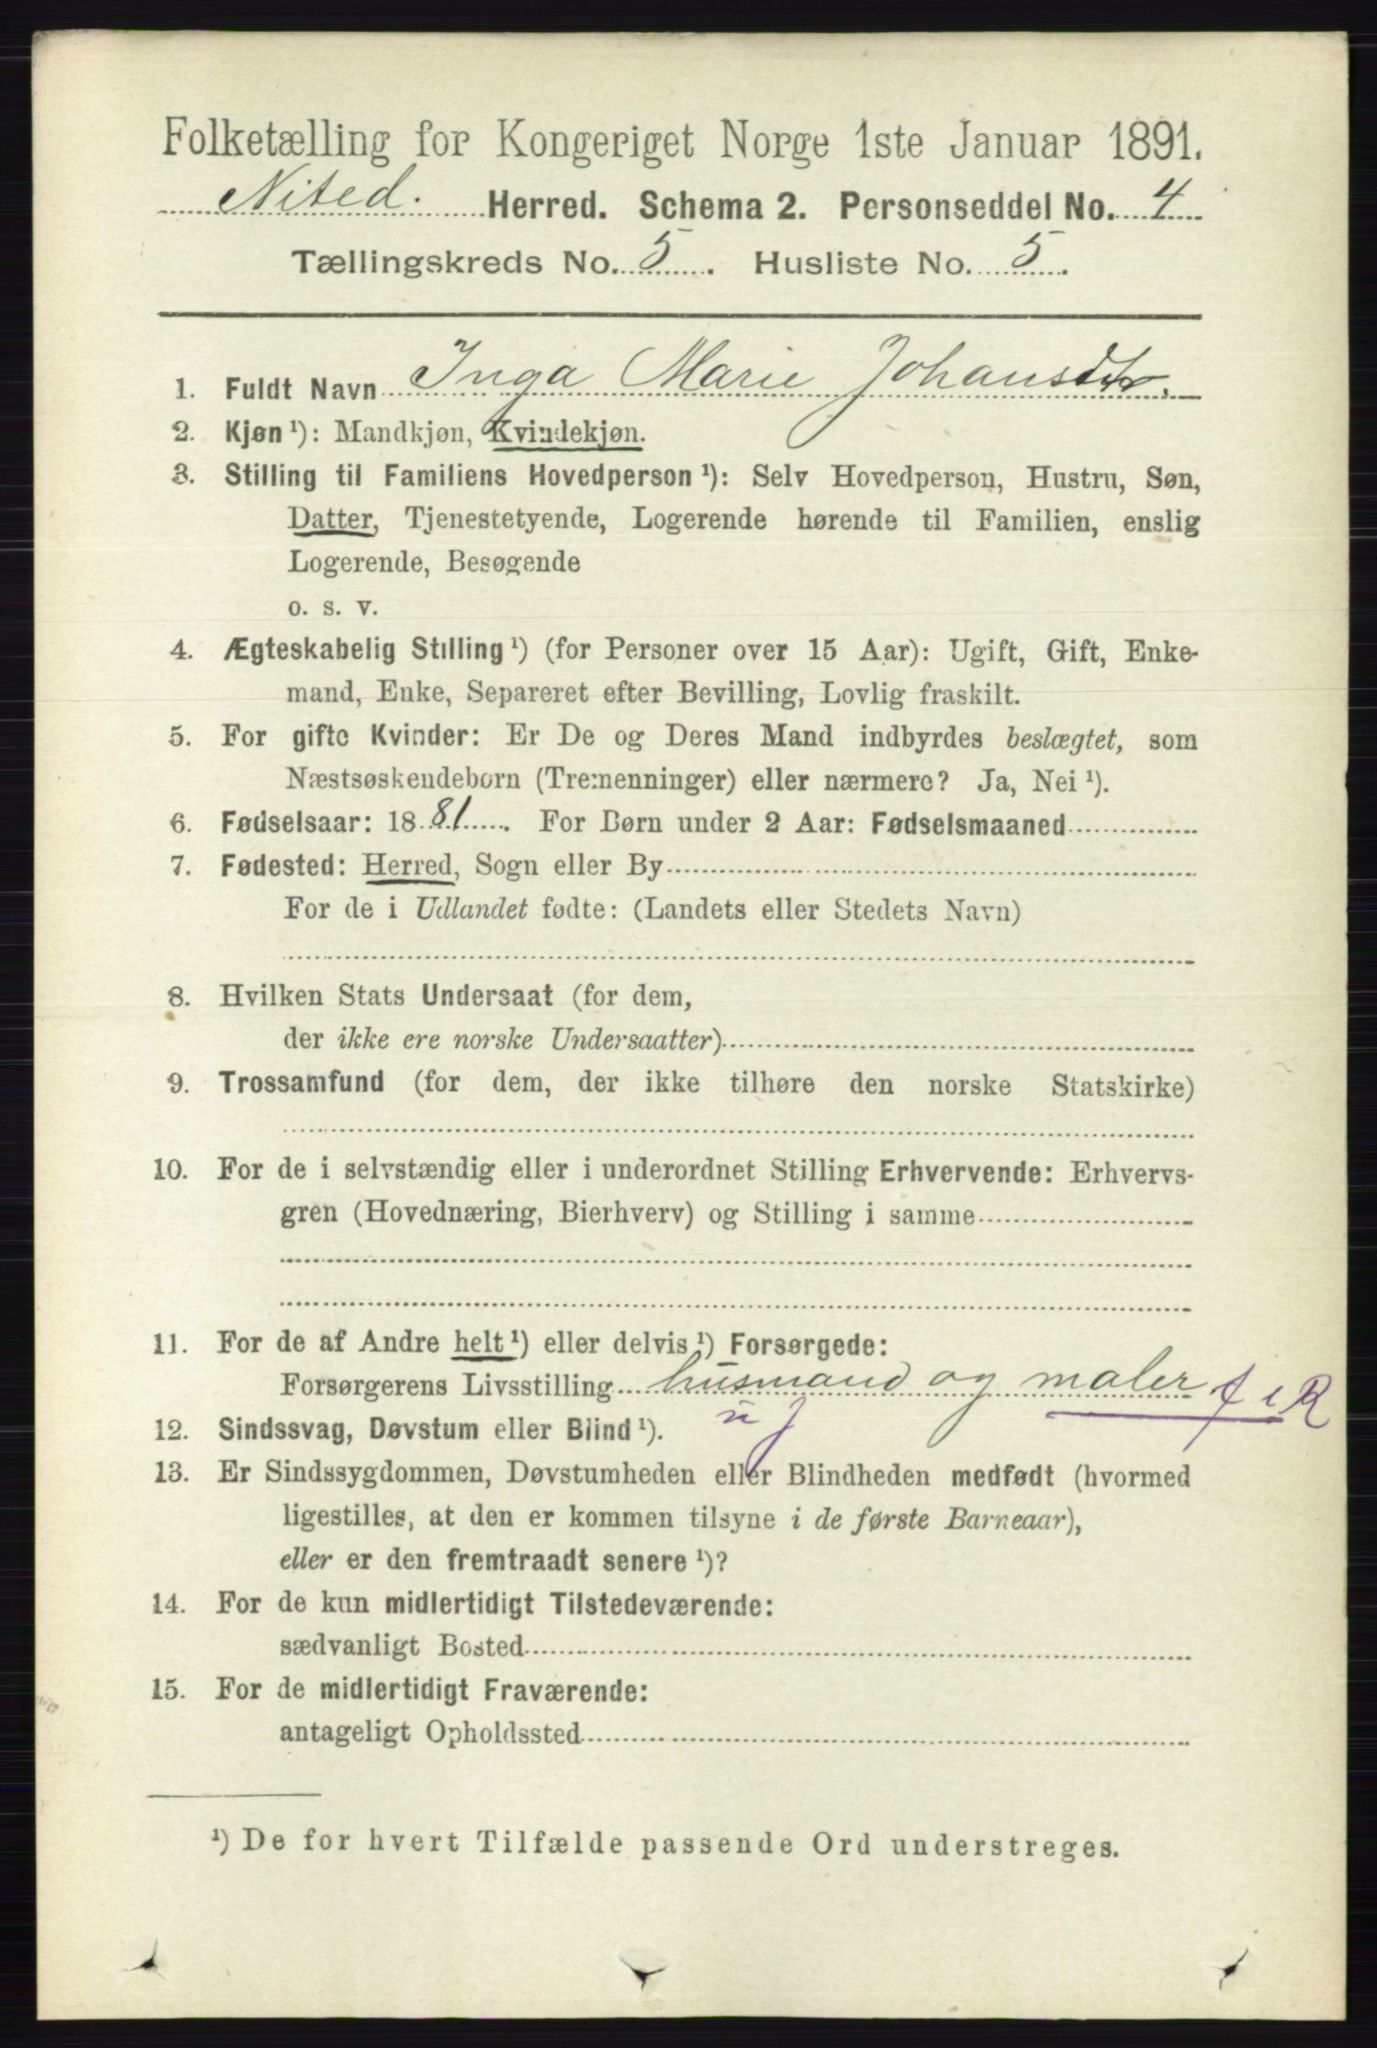 Folketælling for Kongeriget Norge 1ste Januar 1891.
Nited. Herred. Schema 2. Personseddel No. 4
Tællingskreds No. 5. Husliste No. 5.
1. Fuldt Navn Inga Marie Johansdtr.
2. Kjøn ¹): Mandkjøn, Kvindekjøn.
3. Stilling til Familiens Hovedperson ¹): Selv Hovedperson, Hustru, Søn,
Datter, Tjenestetyende, Logerende hørende til Familien, enslig
Logerende, Besøgende
o. s. v.
4. Ægteskabelig Stilling ¹) (for Personer over 15 Aar): Ugift, Gift, Enke-
mand, Enke, Separeret efter Bevilling, Lovlig fraskilt.
5. For gifte Kvinder: Er De og Deres Mand indbyrdes beslægtet, som
Næstsøskendebørn (Tremenninger) eller nærmere? Ja, Nei ¹).
6. Fødselsaar: 1881. For Børn under 2 Aar: Fødselsmaaned
7. Fødested: Herred, Sogn eller By
For de i Udlandet fødte: (Landets eller Stedets Navn)
8. Hvilken Stats Undersaat (for dem,
der ikke ere norske Undersaatter)
9. Trossamfund (for dem, der ikke tilhøre den norske Statskirke)
10. For de i selvstændig eller i underordnet Stilling Erhvervende: Erhvervs-
gren (Hovednæring, Bierhverv) og Stilling i samme
11. For de af Andre helt ¹) eller delvis ¹) Forsørgede:
Forsørgerens Livsstilling husmand og maler
12. Sindssvag, Døvstum eller Blind ¹).
13. Er Sindssygdommen, Døvstumheden eller Blindheden medfødt (hvormed
ligestilles, at den er kommen tilsyne i de første Barneaar),
eller er den fremtraadt senere ¹)?
14. For de kun midlertidigt Tilstedeværende:
sædvanligt Bosted
15. For de midlertidigt Fraværende:
antageligt Opholdssted
¹) De for hvert Tilfælde passende Ord understreges.